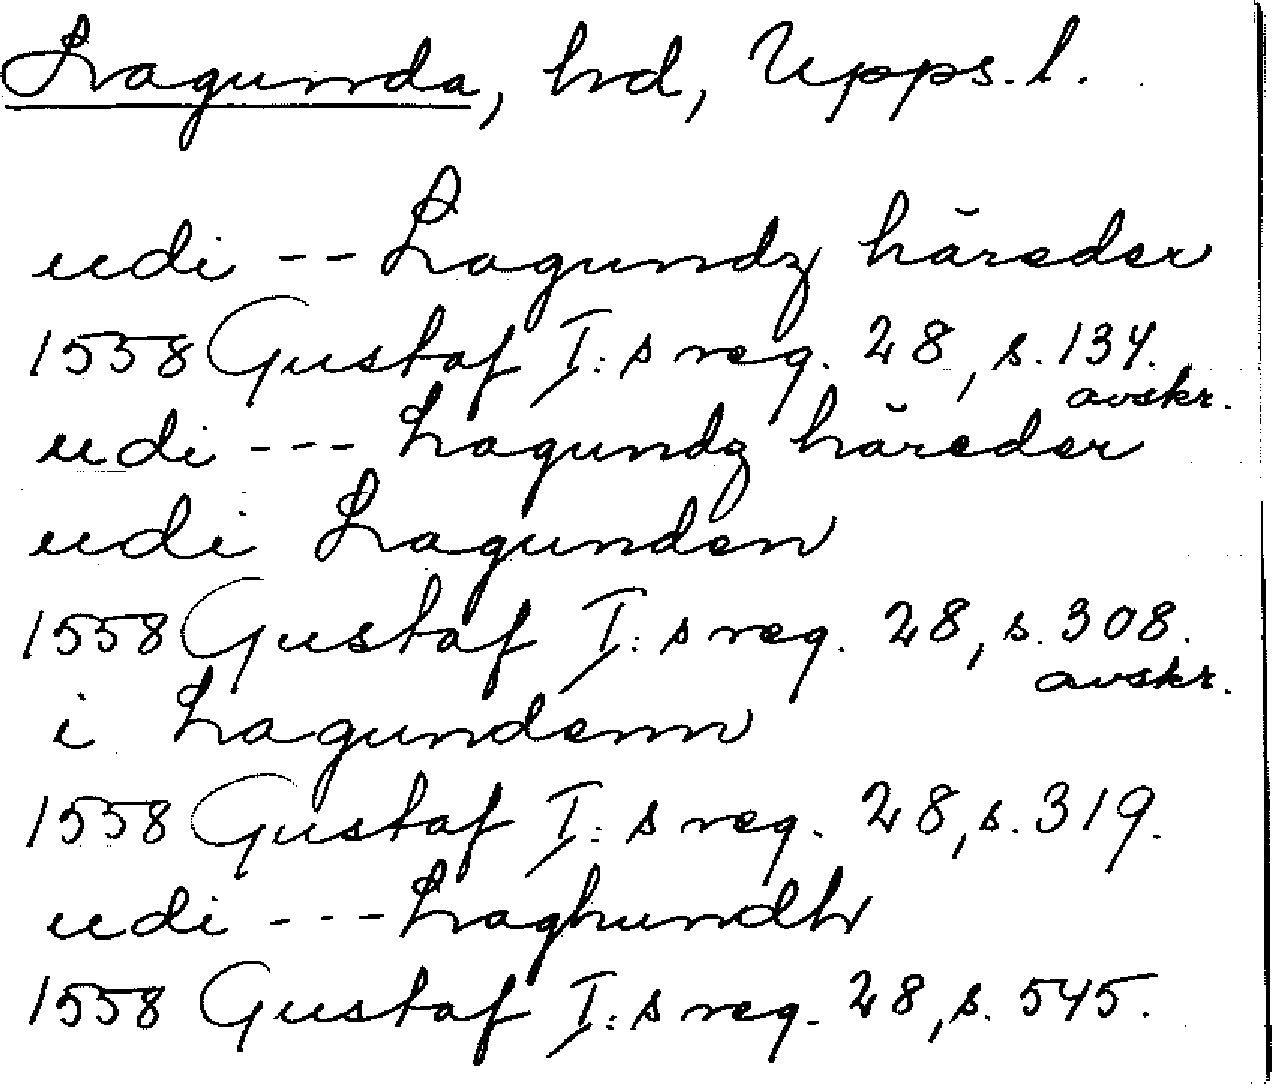 Lagunda, hd, Upps. l.
udi -- Lagundz häreder
1558 Gustaf I:s reg. 28, s. 134.
avskr.
udi --- Lagundz häreder
udi Lagunden
1558 Gustaf I:s reg. 28, s. 308.
avskr.
i Lagundenn
1558 Gustaf I:s reg. 28, s. 319.
udi --- Laghundh
1558 Gustaf I:s reg. 28, s. 545.